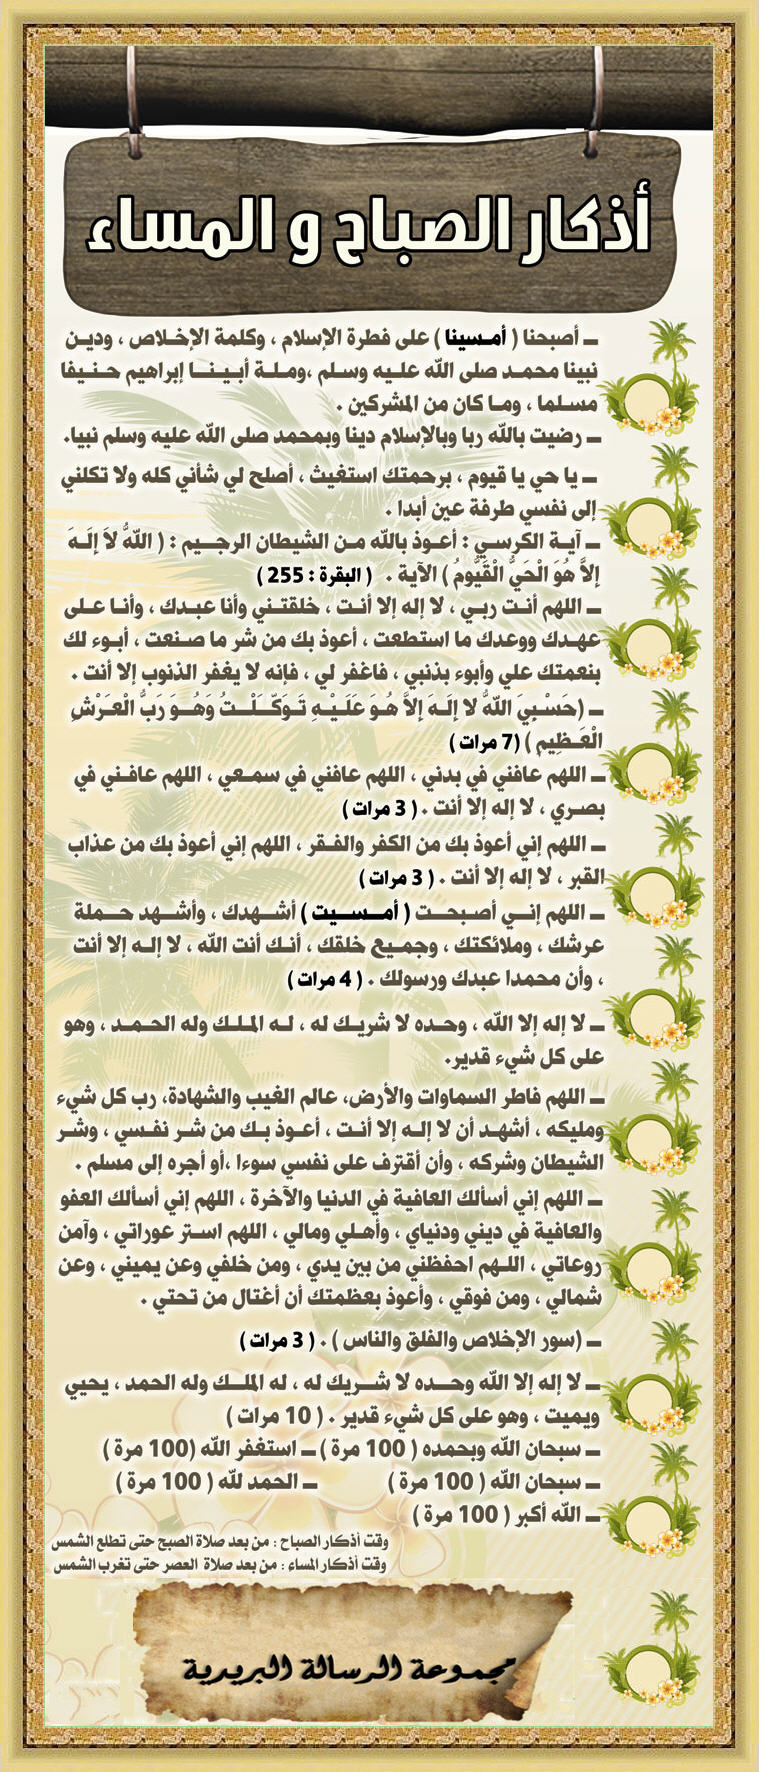 أذكار الصباح و المساء
ـ أصبحنا ( أمـسينا ) على فطرة الإسلام ، وكلمة الإخـلاص ، وديـن
نبينا محمـد صلى الله علـيه وسـلم ،ومـلـة أبـيـنـا إبراهيم حـنـيفا
مسـلما ، ومـا كان من المشركين .
ـ رضيت بالله ربا وبالإسلام دينا وبمحمد صلى الله عليه وسلم نبيا.
ـ يا حي يا قيوم ، برحمتك استغيث ، أصلح لي شأني كله ولا تكلني
إلى نفسي طرفة عين أبدا .
ـ آيـة الكرسـي : أعـوذ بالله مـن الشيطان الرجـيـم : ( اللهُ لاَ إِلَـهَ
إِلاَّ هُوَ الْحَيُّ الْقَيُّومُ ) الآية . ( البقرة : 255 )
ـ اللهم أنـت ربـي ، لا إله إلا أنـت ، خلقتـني وأنا عبـدك ، وأنـا عـلى
عهـدك ووعدك ما استطعت ، أعوذ بك من شر ما صـنعت ، أبـوء لك
بنعمتك علي وأبوء بذنبي ، فاغفر لي ، فإنه لا يغفر الذنوب إلا أنت .
ـ (حَسْـبِيَ اللهُ لا إِلَـهَ إِلاَّ هُـوَ عَلَـيْـهِ تَـوَكَّــلْــتُ وَهُــوَ رَبُّ الْعَـرْشِ
الْعَـظِيمِ ) (7 مرات )
ـ اللهم عافني في بدني ، اللهم عافني في سمـعي ، اللهم عافـني في
بصـري ، لا إله إلا أنت . ( 3 مرات )
ـ اللهم إني أعوذ بك من الكفر والفـقر ، اللهم إني أعوذ بك من عذاب
القبر ، لا إله إلا أنت . ( 3 مرات )
ـ اللهم إنـي أصـبحـت ( أمـسـيت ) أشـهدك ، وأشـهد حـملة
عرشك ، وملائكتك ، وجمـيع خلقك ، أنـك أنت الله ، لا إلـه إلا أنت
، وأن محمدا عبدك ورسولك . ( 4 مرات )
ـ لا إله إلا الله ، وحـده لا شريـك له ، لـه المـلـك وله الحـمـد ، وهو
على كل شيء قدير.
ـ اللهم فاطر السماوات والأرض، عالم الغيب والشهادة، رب كل شيء
ومليكه ، أشهـد أن لا إلـه إلا أنـت ، أعـوذ بـك من شـر نفـسي ، وشـر
الشيطان وشركه ، وأن أقترف على نفسي سوءا ،أو أجره إلى مسلم .
ـ اللهم إني أسألك العافية في الدنيا والآخرة ، اللهم إني أسألك العفو
والعافية في ديني ودنياي ، وأهـلي ومالي ، اللهم اسـتر عوراتي ، وآمن
روعاتي ، اللـهم احفظني من بين يدي ، ومن خلفي وعن يميني ، وعن
شمالي ، ومن فوقي ، وأعوذ بعظمتك أن أغتال من تحتي .
ـ (سور الإخلاص والفلق والناس ) . ( 3 مرات )
ـ لا إله إلا الله وحـده لا شـريك له ، له الملـك وله الحمد ، يحيي
ويميت ، وهو على كل شيء قدير . ( 10 مرات )
ـ سبحان الله وبحمده ( 100 مرة ) ـ استغفر الله (100 مرة )
ـ سبحان الله ( 100 مرة ) ـ الحمد لله ( 100 مرة )
ـ الله أكبر ( 100 مرة )
وقت أذكار الصباح : من بعد صلاة الصبح حتى تطلع الشمس
وقت أذكار المساء : من بعد صلاة العصر حتى تغرب الشمس
مجموعة الرسالة البريدية